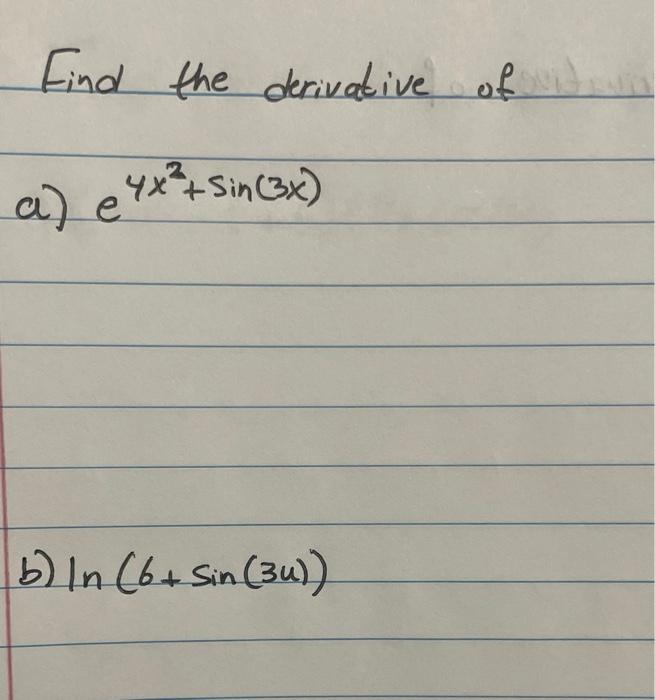 Find the derivative of
a) e^{4x²+sin(3x)}
b) ln(6+sin(3u))